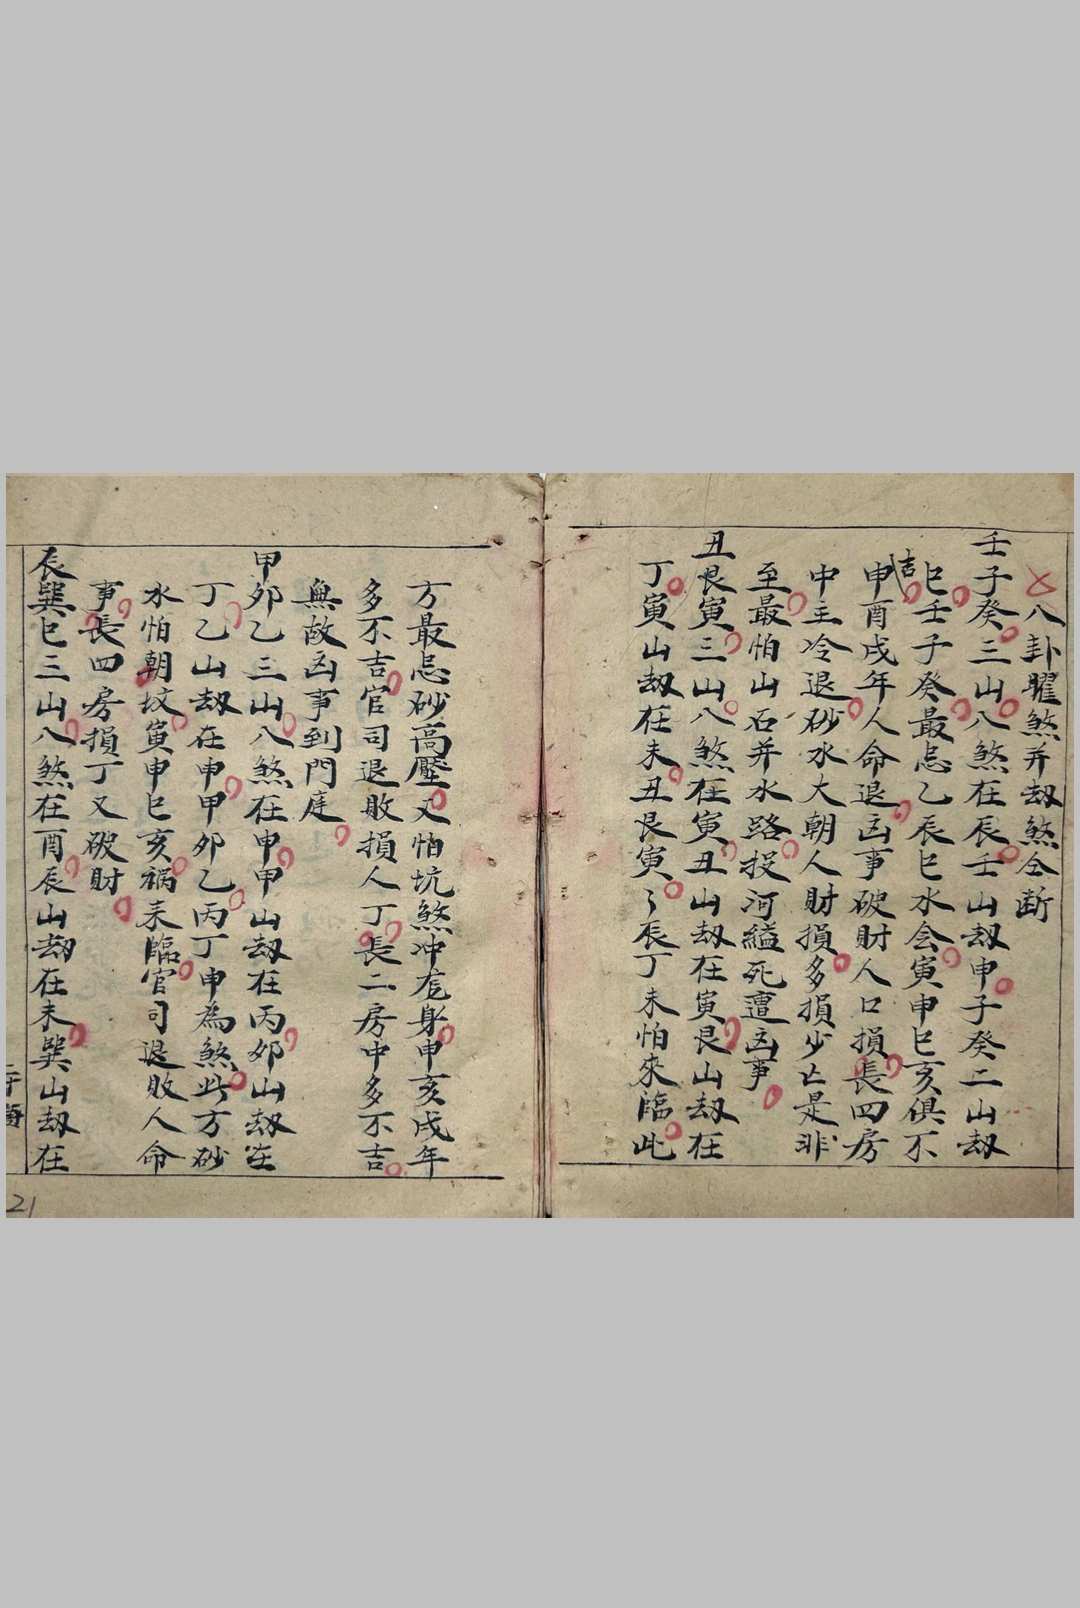 八卦曜煞并劫煞全断
壬子癸三山八煞在辰壬山劫申子癸二山劫
巳壬子癸最忌乙辰巳水会寅申巳亥俱不
吉
申酉戌年人命退凶事破財人口損長四房
中主冷退砂水大朝人財損多損少亡是非
至最怕山石并水路投河縊死遭凶事
丑艮寅三山八煞在寅丑山劫在寅艮山劫在
丁寅山劫在未丑艮寅〻辰丁未怕來臨此
方最忌砂高壓又怕坑煞冲庖身申亥戌年
多不吉官司退敗損人丁長二房中多不吉
無故凶事到門庭
甲卯乙三山八煞在申甲山劫在丙卯山劫在
丁乙山劫在申甲卯乙丙丁申為煞此方砂
水怕朝坟寅申巳亥禍来臨官司退敗人命
事長四房損丁又破財
辰巽巳三山八煞在酉辰山劫在未巽山劫在
21